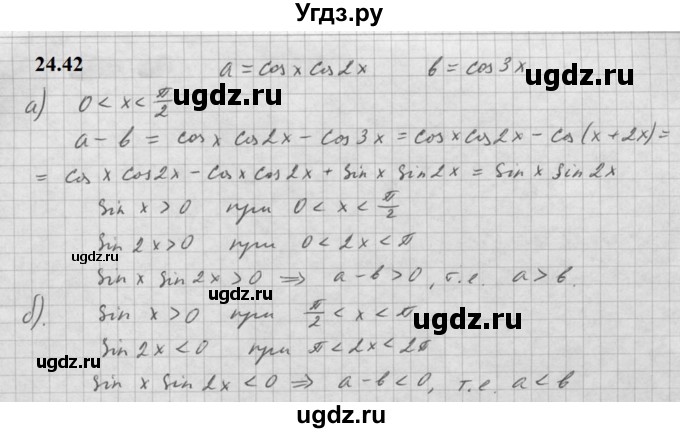 Угдз.ру
24.42 a = cos x cos 2x b = cos 3x
a) 0 < x < π/2
ugdz.ru ugdz.ru
a - b = cos x cos 2x - cos 3x = cos x cos 2x - cos (x + 2x) =
= cos x cos 2x - cos x cos 2x + sin x sin 2x = sin x sin 2x
sin x > 0 при 0 < x < π/2
ugdz.ru
sin 2x > 0 при 0 < 2x < π
sin x sin 2x > 0 ⇒ a - b > 0, т.е. a > b.
ugdz.ru ugdz.ru
б). sin x > 0 при π/2 < x < π
sin 2x < 0 при π < 2x < 2π
ugdz.ru ugdz.ru
sin x sin 2x < 0 ⇒ a - b < 0, т.е. a < b
ugdz.ru